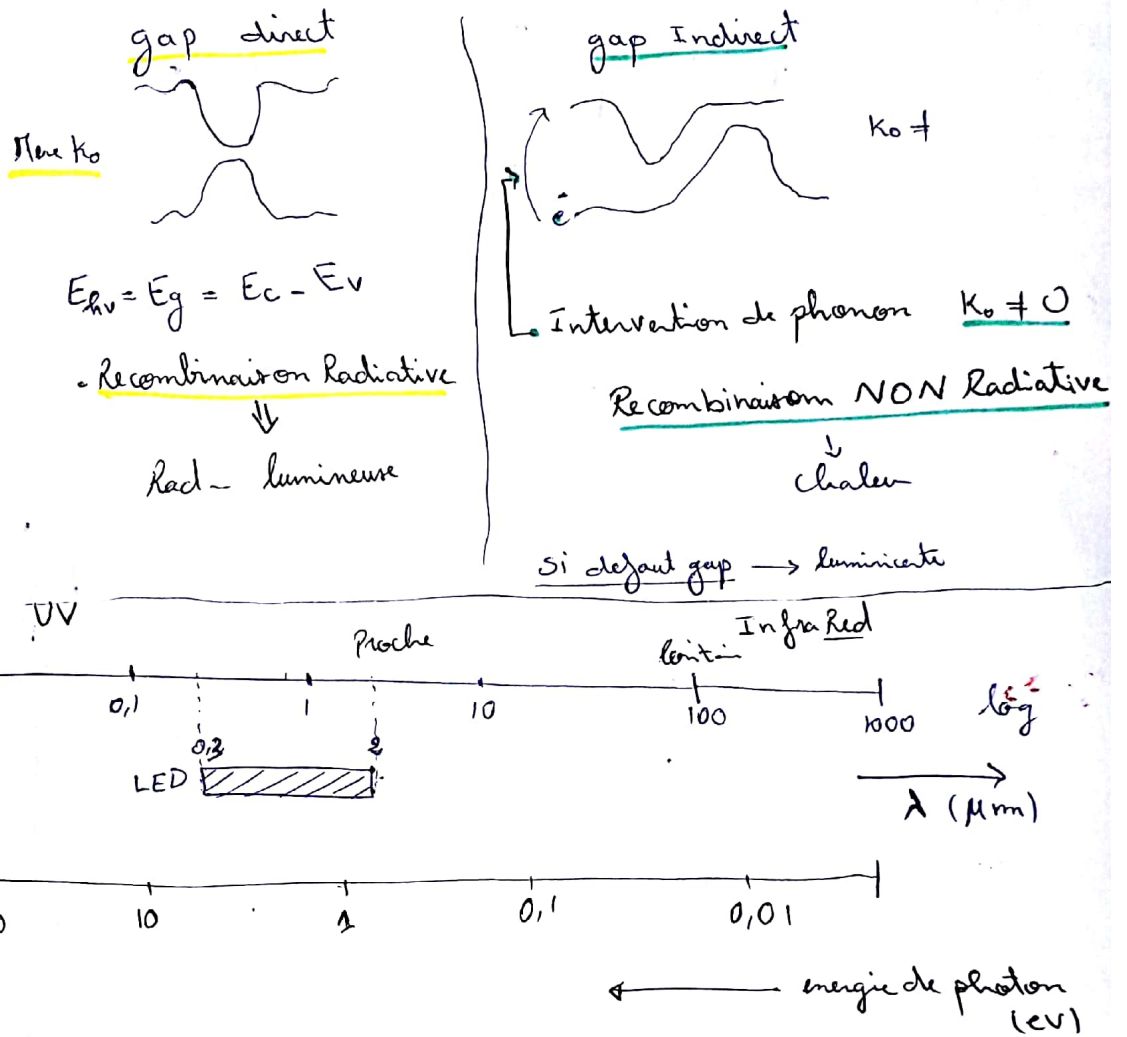 gap direct
Même k₀
E_hν = Eg = Ec - Ev
. Recombinaison Radiative
⇓
Rad - lumineuse
gap Indirect
k₀ ≠
e⁻
. Intervention de phonon k₀ ≠ 0
Recombinaison NON Radiative
↓
chaleur
Si defaut gap → luminicente
UV Proche lointain InfraRed
0,1 1 10 100 1000 log
0,3 2
LED
λ (μm)
10 1 0,1 0,01
← energie de photon
(eV)